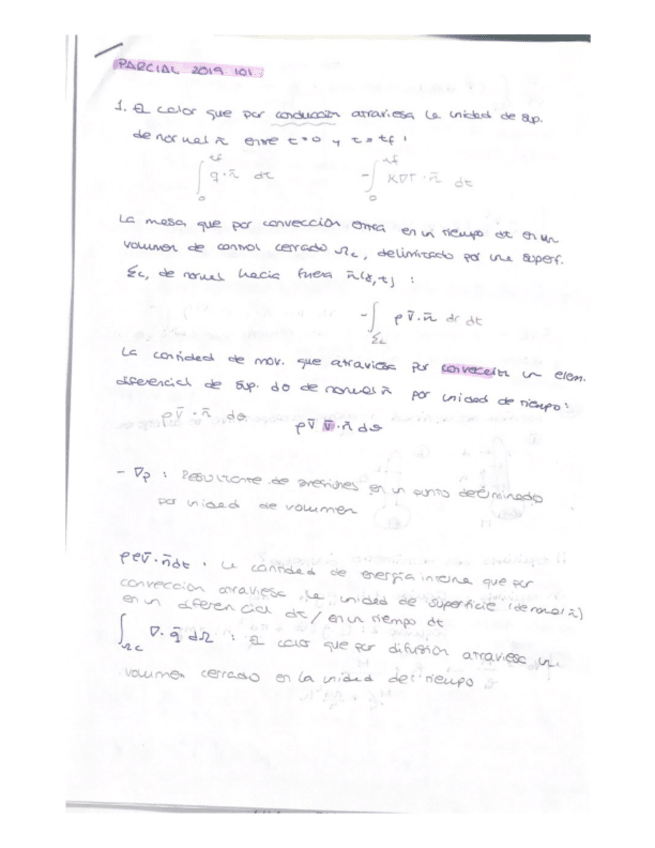 PARCIAL 2019 101
1. El calor que por conducción atraviesa la unidad de sup.
de normal n̄ entre t=0 y t=tf:
∫₀^tf q̄·n̄ dt   -∫₀^tf K∇T·n̄ dt
La masa que por convección entra en un tiempo dt en un
volumen de control cerrado Ωc, delimitado por una superf.
Σc, de normal hacia fuera n̄(x̄,t):
-∫_Σc ρ v̄·n̄ dσ dt
La cantidad de mov. que atraviesa por convección un elem.
diferencial de sup. dσ de normal n̄ por unidad de tiempo:
ρv̄·n̄ dσ   ρv̄ v̄·n̄ dσ
- ∇p : Resultante de presiones en un punto determinado
por unidad de volumen
ρev̄·n̄dt : La cantidad de energía interna que por
convección atraviesa la unidad de superficie (de normal n̄)
en un diferencial dt / en un tiempo dt
∫_Ωc ∇·q̄ dΩ : El calor que por difusión atraviesa un
volumen cerrado en la unidad de tiempo